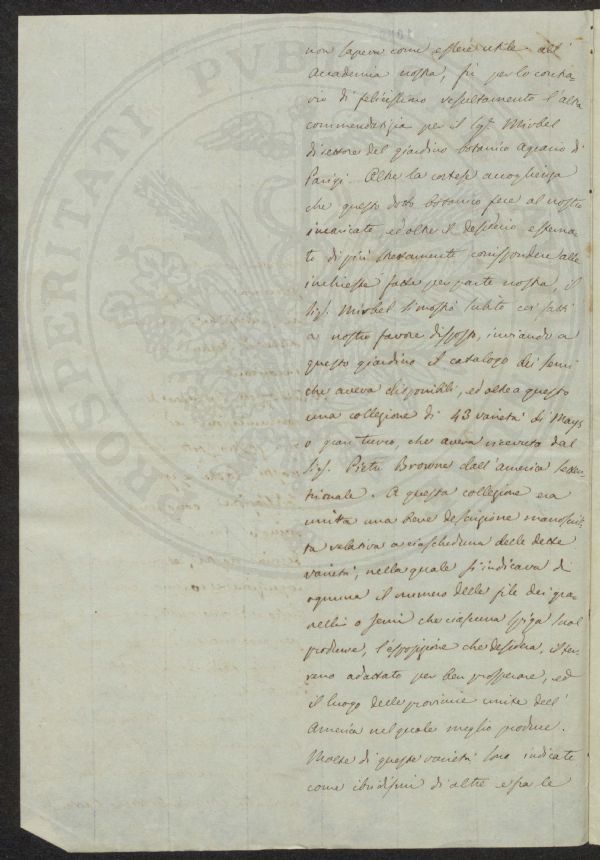 PROSPERITATI PUBL
non sapeva come essere utile all'
Accademia nostra, fu per lo contra-
rio di felicissimo resultamento l'altra
commendatizia per il Sig. Mirbel
direttore del giardino botanico Agrario di
Parigi. Oltre la cortese accoglienza
che questo dotto botanico fece al nostro
incaricato, ed oltre il desiderio esterna-
to di più strettamente corrispondere alle
inchieste fatte per parte nostra, il
Sig. Mirbel si mostrò subito coi fatti
a nostro favore disposto, inviando a
questo giardino il catalogo dei semi
che aveva disponibili, ed oltre a questo
una collezione di 43 varietà di Mays
o gran turco, che aveva ricevuta dal
Sig. Pietro Browne dall'america Setten-
trionale. A questa collezione era
unita una breve descrizione manoscrit-
ta relativa a ciascheduna delle dette
varietà, nella quale s'indicava di
ognuna il numero delle file dei gra-
nelli o semi che ciascuna spiga suol
produrre, l'esposizione che desidera, il ter-
reno adattato per ben prosperare, ed
il luogo delle provincie unite dell'
America nel quale meglio produce.
Molte di queste varietà sono indicate
come ibridismi di altre e fra le